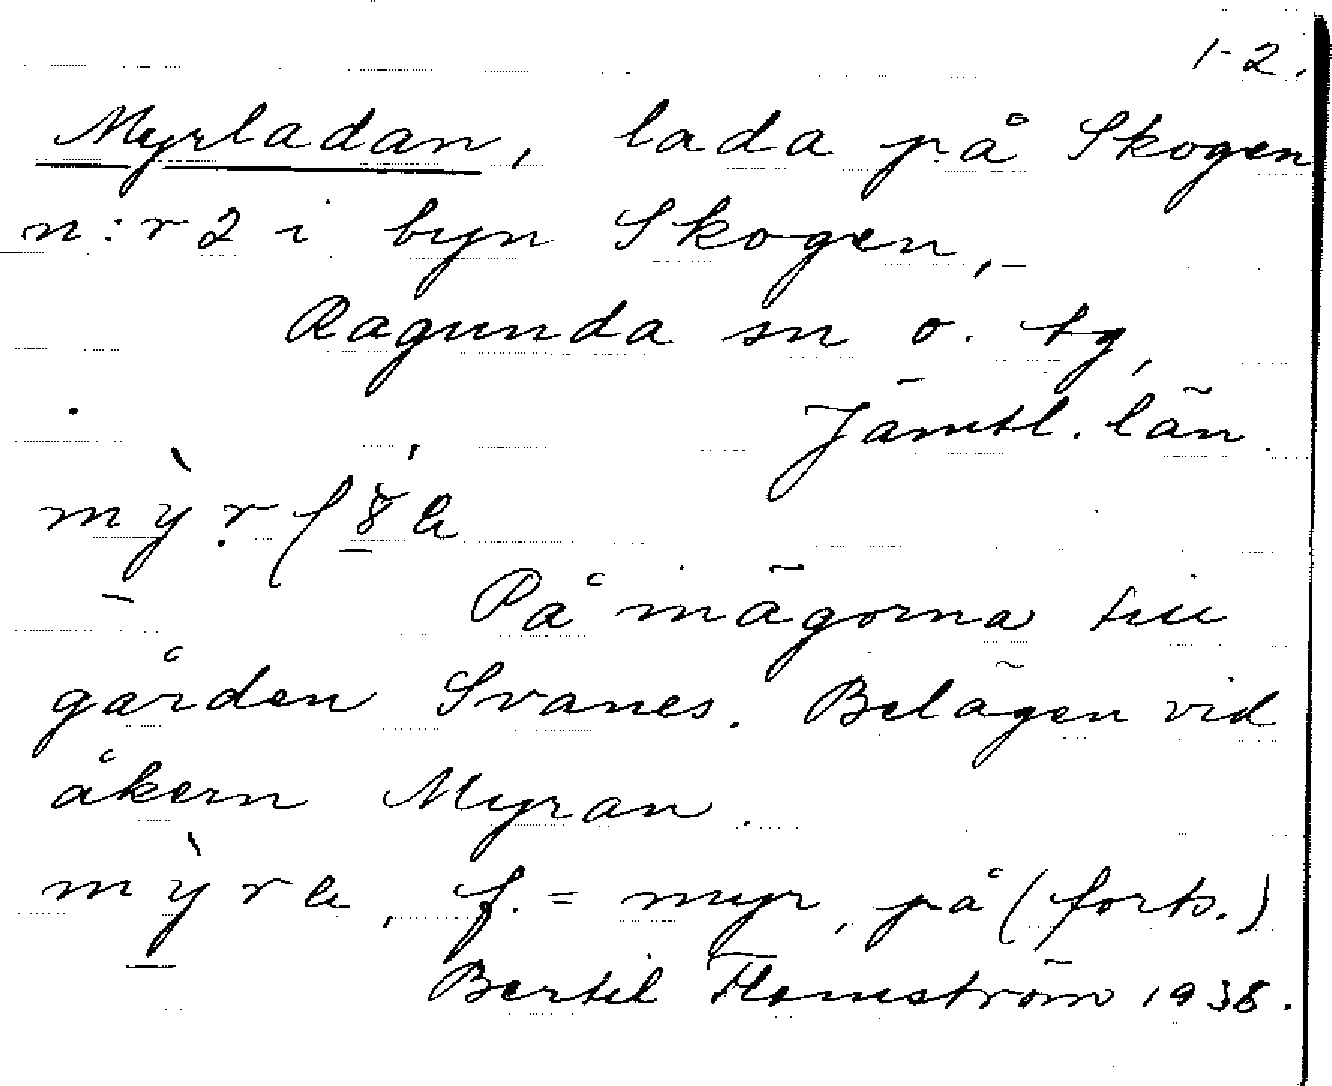 1-2.
Myrladan, lada på Skogen
n:r 2 i byn Skogen,-
Ragunda sn o. tg,
Jämtl. län.
På mägorna till
gården Svanes. Belägen vid
åkern Myran.
mỳra, f. = myr, på (forts.)
Bertil Flemström 1938.